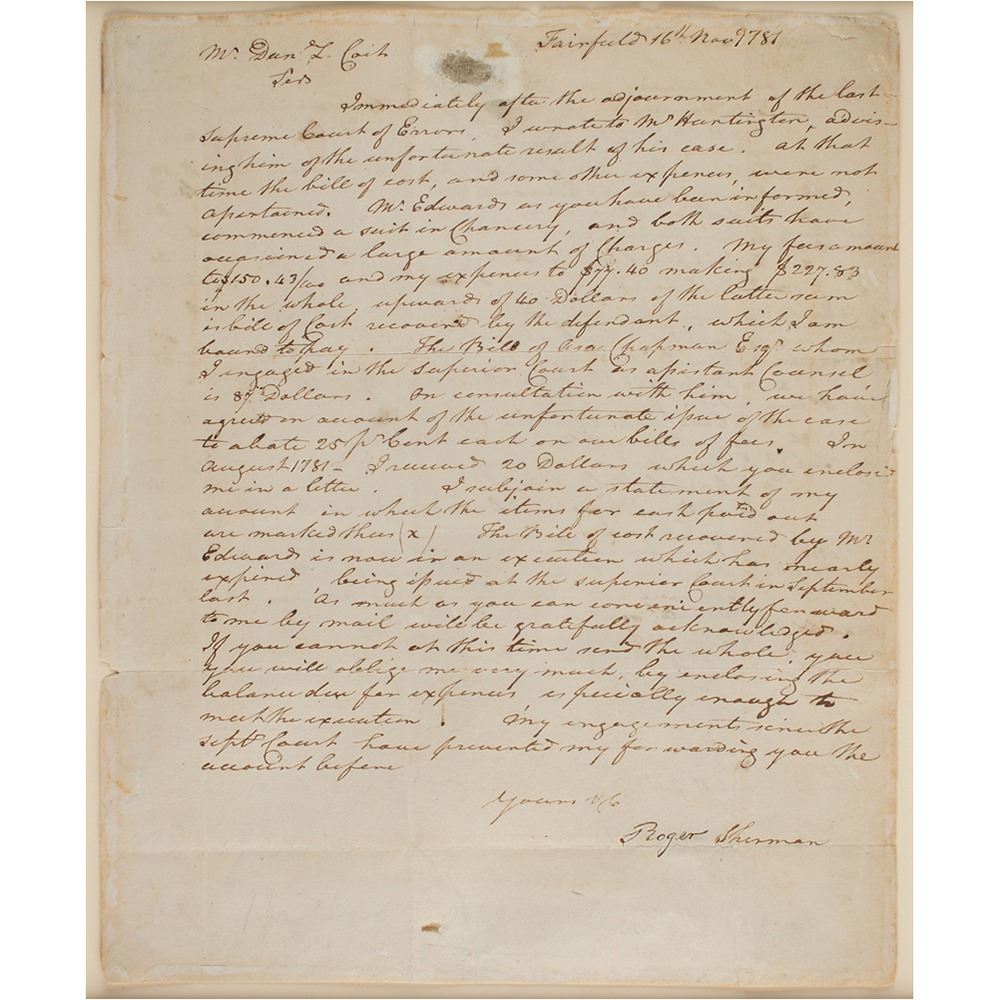 Fairfield 16th Novr 1781
Mr. Danl. L. Coit
Immediately after the adjournment of the last
Supreme Court of Errors, I wrote to Mr Huntington, advis-
ing him of the unfortunate result of his case. At that
time the bill of cost, and some other expences, were not
asertained. Mr. Edwards as you have been informed,
commenced a suit in Chancery, and both suits have
occasioned a large amount of Charges. My fees amount
to $150.43/100 and my expences to $77.40 making $227.83
in the whole, upwards of 40 Dollars of the latter sum
is bill of Cost recovered by the defendant, which I am
bound to pay. The Bill of Asa Chapman Esqr. whom
I engaged in the Superior Court as assistant Counsel
is 87 Dollars. On consultation with him, we have
agreed on account of the unfortunate issue of the case
to abate 25 pr Cent each on our bills of fees. In
August 1781- I received 20 Dollars which you enclosed
me in a letter. I subjoin a statement of my
account in which the items for cash paid out
are marked thus (x) The Bill of cost recovered by Mr
Edwards is now in an execution which has nearly
expired being issued at the superior Court in September
last. As much as you can conveniently forward
to me by mail will be gratefully acknowledged.
If you cannot at this time send the whole, you
you will oblige me very much, by enclosing the
balance due for expences especially enough to
meet the execution My engagements since the
Septr Court have prevented my forwarding you the
account before
Yours &c
Roger Sherman